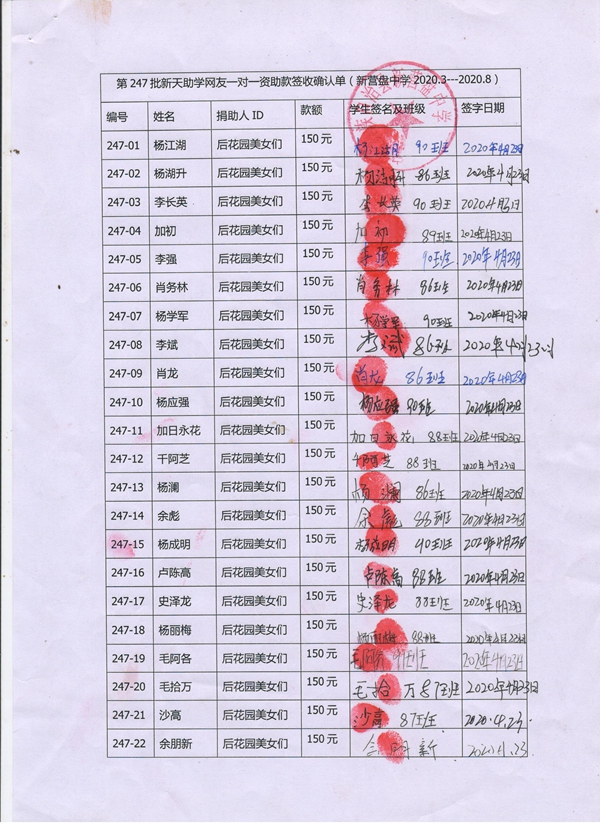 第 247 批新天助学网友一对一资助款签收确认单（新营盘中学 2020.3---2020.8）
编号 姓名 捐助人 ID 款额 学生签名及班级 签字日期
247-01 杨江湖 后花园美女们 150 元 杨江湖 90班 2020年4月23日
247-02 杨湖升 后花园美女们 150 元 86班 2020年4月23日
247-03 李长英 后花园美女们 150 元 李长英 90班 2020年4月3日
247-04 加初 后花园美女们 150 元 加初 89班 2020年4月23日
247-05 李强 后花园美女们 150 元 李强 90班 2020年4月23日
247-06 肖务林 后花园美女们 150 元 肖务林 86班 2020年4月23日
247-07 杨学军 后花园美女们 150 元 杨学军 90班 2020年4月23日
247-08 李斌 后花园美女们 150 元 李斌 86班 2020年4月23日
247-09 肖龙 后花园美女们 150 元 肖龙 86班 2020年4月23日
247-10 杨应强 后花园美女们 150 元 杨应强 90班 2020年4月23日
247-11 加日永花 后花园美女们 150 元 加日永花 88班 2020年4月23日
247-12 干阿芝 后花园美女们 150 元 88班 2020年4月23日
247-13 杨澜 后花园美女们 150 元 杨澜 86班 2020年4月23日
247-14 余彪 后花园美女们 150 元 余彪 88班 2020年4月23日
247-15 杨成明 后花园美女们 150 元 杨成明 90班 2020年4月23日
247-16 卢陈高 后花园美女们 150 元 卢陈高 88班 2020年4月23日
247-17 史泽龙 后花园美女们 150 元 史泽龙 88班 2020年4月23日
247-18 杨丽梅 后花园美女们 150 元 杨丽梅 88班 2020年4月23日
247-19 毛阿各 后花园美女们 150 元 班 2020年4月23日
247-20 毛拾万 后花园美女们 150 元 毛拾万 87班 2020年4月23日
247-21 沙高 后花园美女们 150 元 沙高 87班 2020.4.23
247-22 余朋新 后花园美女们 150 元 余朋新 2020.4.23